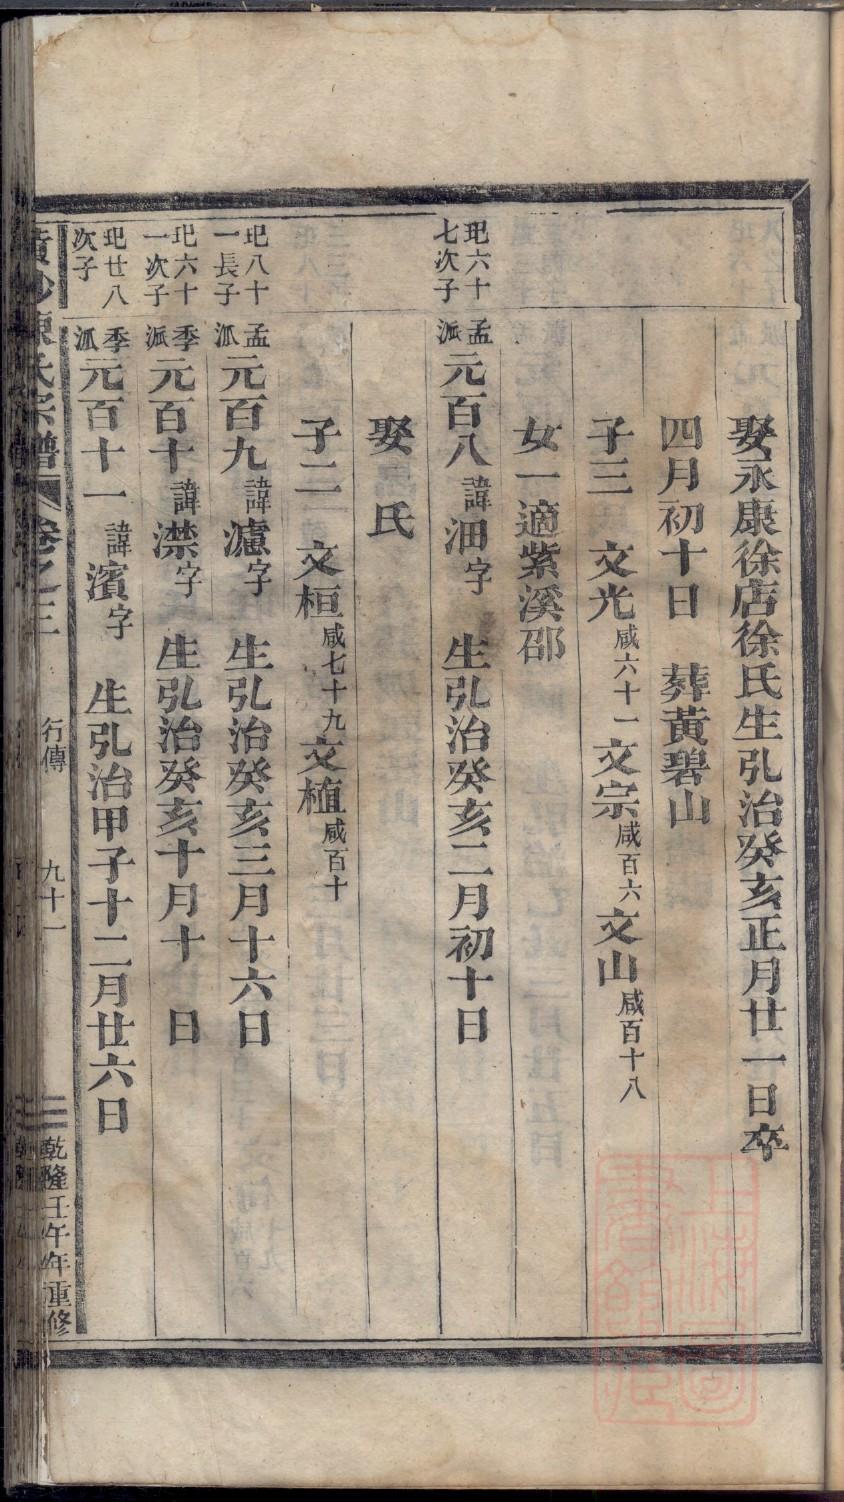 娶永康徐店徐氏生弘治癸亥正月廿一日卒
四月初十日　葬黃碧山
子三　文光咸六十一文宗咸百六文山咸百十八
女一適紫溪邵
玘六十七次子
孟派元百八諱沺字　生弘治癸亥二月初十日
娶　氏
子二　文桓咸七十九文植咸百十
玘八十一長子
孟派元百九諱濾字　生弘治癸亥三月十六日
玘六十一次子
季派元百十諱澿字　生弘治癸亥十月十　日
玘廿八次子
季派元百十一諱濱字　生弘治甲子十二月廿六日
陳氏宗譜　卷之三　行傳　九十一　乾隆壬午年重修
上海圖書館藏